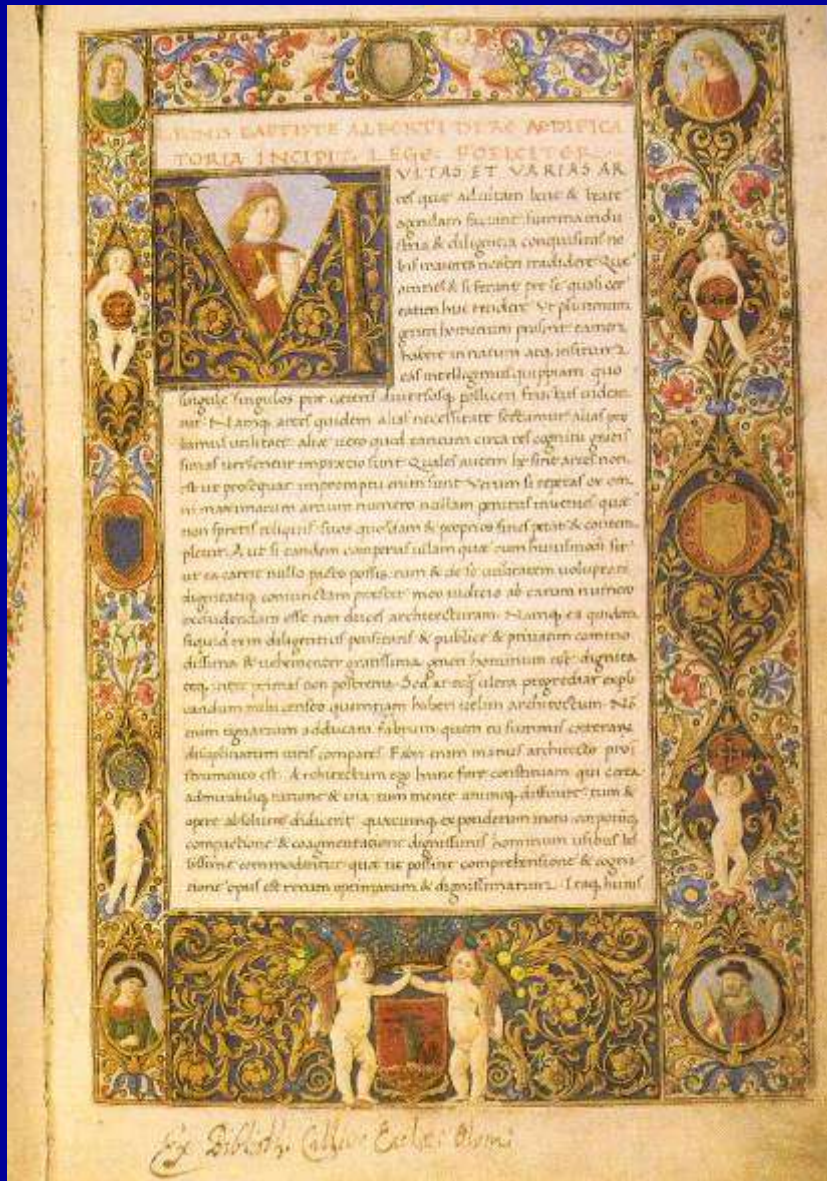 LEONIS BAPTISTE ALBERTI DE RE AEDIFICA
TORIA INCIPIT. LEGE. FOELICITER
MVLTAS ET VARIAS AR
tes quae ad uitam bene & beate
agendam faciant summa indu
stria & diligentia conquisitas no
bis maiores nostri tradidere. Que
omnes & si ferant pre se quasi cer
tatim huc tendere Vt plurimum
generi hominum prosint tamen
habere innatum atq. insitum
eas intelligimus quippiam quo
singule singulos pre ceteris diuersosq. polliceri fructus uidean
tur. Namq. artes quidem alias necessitate sectamur alias pro
bamus utilitate aliae uero quod tantum circa res cognitu gratis
simas uersentur in praetio sunt. Quales autem hę sint artes non
est ut prosequar in promptu enim sunt. Verum si repetas ex om
ni maximarum artium numero nullam penitus inuenies quae
non spretis reliquis suos quosdam & proprios fines petat & contem
pletur. Aut si tandem comperias ullam quae cum huiusmodi sit
ut ea carere nullo pacto possis, tum & de se utilitatem uoluptati
dignitatiq. coniunctam praestet meo iudicio ab earum numero
excludendam esse non duces architecturam. Namq. ea quidem
siquid rem diligentius pensitaris & publice & priuatim commo
dissima & uehementer gratissima generi hominum est dignita
teq. inter primas non postrema. Sed ante q. ultra progrediar expli
candum mihi censeo quemnam haberi uelim architectum. Nō
enim tignarium adducam fabrum quem tu summis ceterarum
disciplinarum uiris compares. Fabri enim manus architecto pro in
strumento est. Architectum ego hunc fore constituam qui certa
admirabiliq. ratione & uia tum mente animoq. diffinire tum &
opere absoluere didicerit quaecumq. ex ponderum motu corporumq.
compactione & coagmentatione dignissimis hominum usibus bel
lissime commodentur quae ut possint comprehensione & cogni
tione opus est rerum optimarum & dignissimarum. Itaq. huius
Ex Biblioth.